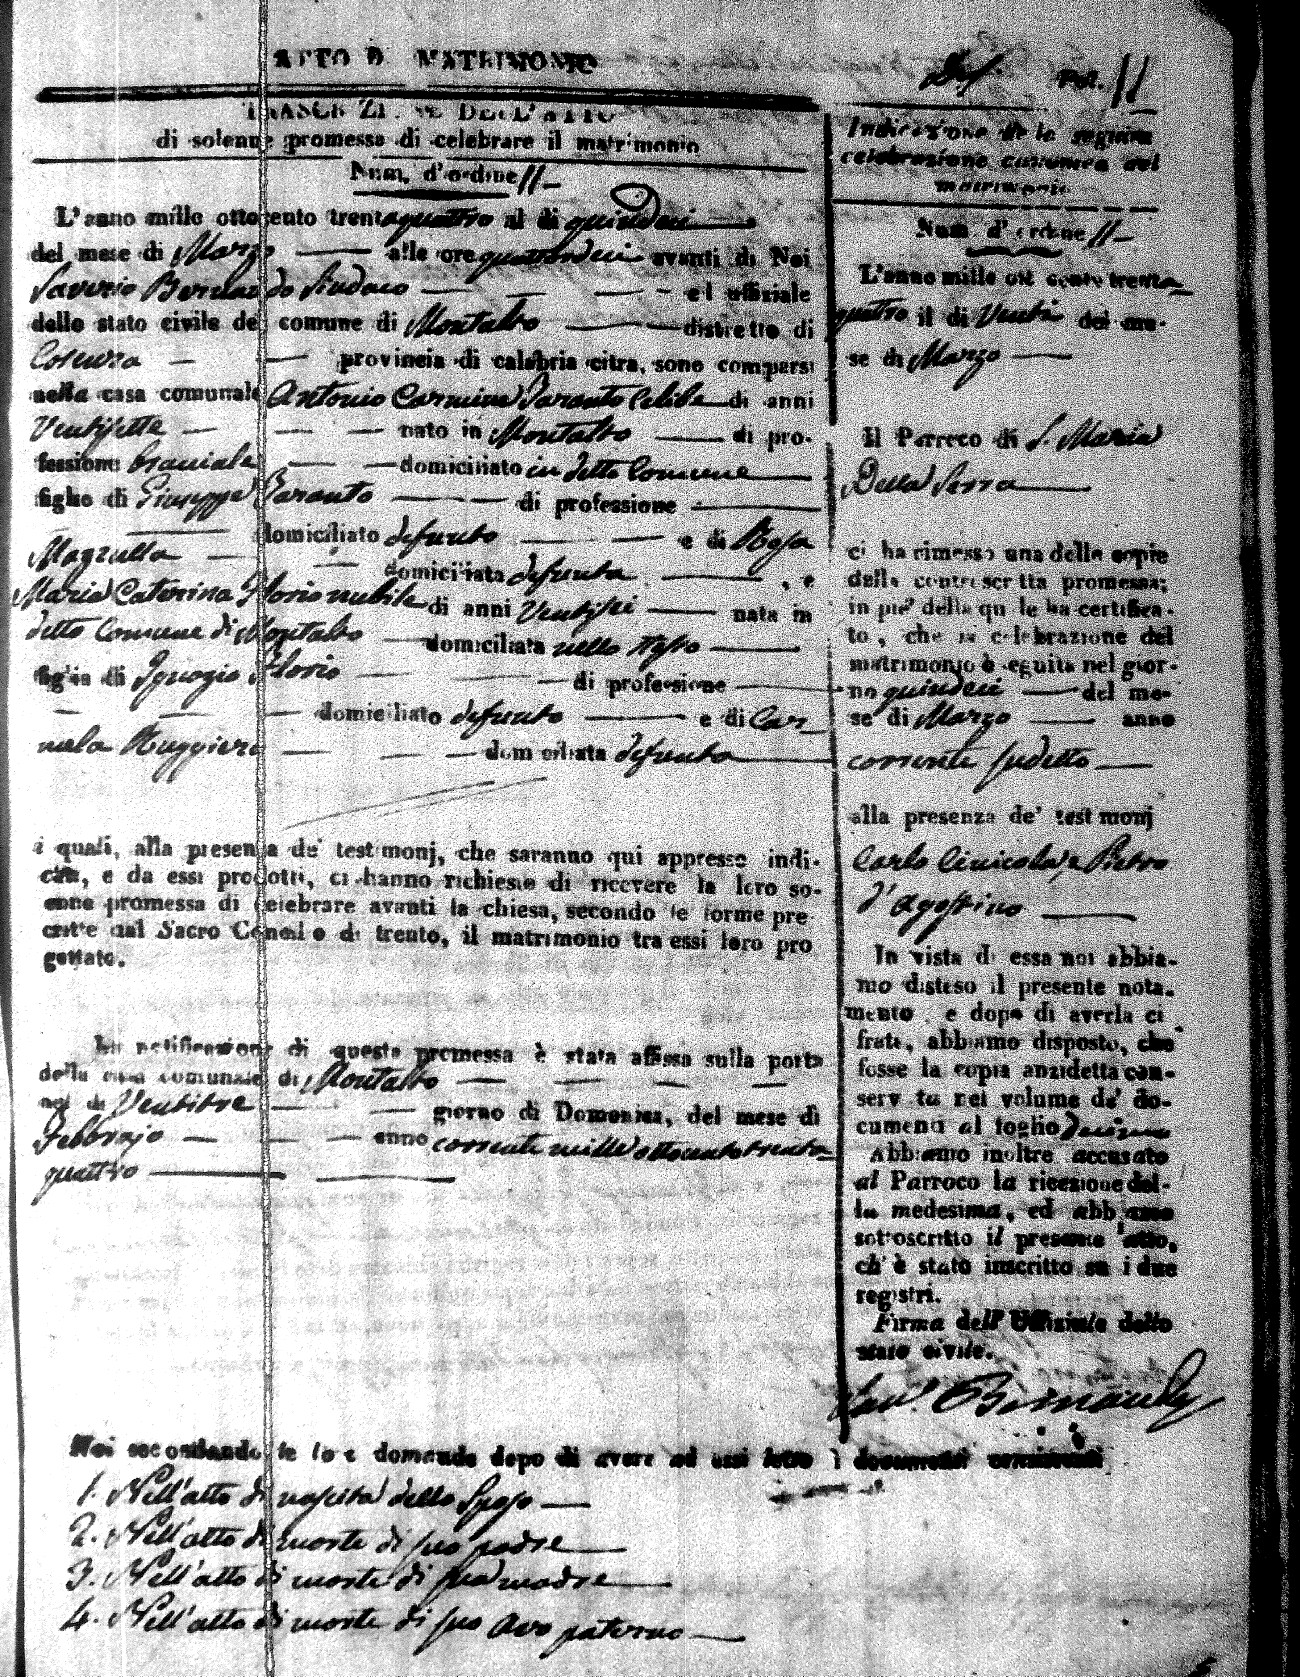 ATTO D MATRIMONIO
Fol. 11
TRASCRIZIONE DELL'ATTO
di solenne promessa di celebrare il matrimonio
Num. d'ordine 11
L'anno mille ottocento trentaquattro al di quindeci
del mese di Marzo alle ore quattordeci avanti di Noi
Saverio Bernardo Sindaco ed uffiziale
dello stato civile del comune di Montalto distretto di
Cosenza provincia di calabria citra, sono comparsi
nella casa comunale Antonio Carmine Paranto Celibe di anni
Ventisette nato in Montalto di pro-
fessione bracciale domiciliato in detto Comune
figlio di Giuseppe Paranto di professione
domiciliato defunto e di Rosa
Magzulla domiciliata defunta , e
Maria Caterina Florio nubile di anni Ventisei nata in
detto Comune di Montalto domiciliata nello stesso
figlia di Ignazio Florio di professione
domiciliato defunto e di Car-
mela Ruggiero domiciliata defunta
i quali, alla presenza de' testimonj, che saranno qui appresso indi-
cati, e da essi prodotti, ci hanno richiesto di ricevere la loro so-
enne promessa di celebrare avanti la chiesa, secondo le forme pre
critte dal Sacro Concilio di trento, il matrimonio tra essi loro pro
gettato.
La notificazione di questa promessa è stata affissa sulla porta
della casa comunale di Montalto
nel di Ventitre giorno di Domenica, del mese di
Febbrajo anno corrente mille ottocento trenta
quattro
Indicazione de la seguita
celebrazione canonica del
matrimonio
Num. d'ordine 11
L'anno mille ott cento trenta
quattro il di Venti del me-
se di Marzo
Il Parroco di S. Maria
Della Serra
ci ha rimesso una delle copie
della controscritta promessa;
in piè della quale ha certifica-
to, che la celebrazione del
matrimonio è seguita nel gior-
no quindeci del me-
se di Marzo anno
corrente sudetto
alla presenza de' testimonj
Carlo e Pietro
d'Agostino
In vista di essa noi abbia-
mo disteso il presente nota-
mento e dopo di averla ci
frata, abbiamo disposto, che
fosse la copia anzidetta con-
servata nel volume de' do-
cumenti al foglio Decimo
Abbiamo inoltre accusato
al Parroco la ricezione del-
la medesima, ed abbiamo
sottoscritto il presente atto,
ch'è stato inscritto su i due
registri.
Firma dell' Uffiziale dello
stato civile.
Sav.
Noi secondando le loro domande dopo di avere ad essi letto i documenti consistenti
1. Nell'atto di nascita dello Sposo
2. Nell'atto di morte di suo padre
3. Nell'atto di morte di sua madre
4. Nell'atto di morte di suo Avo paterno